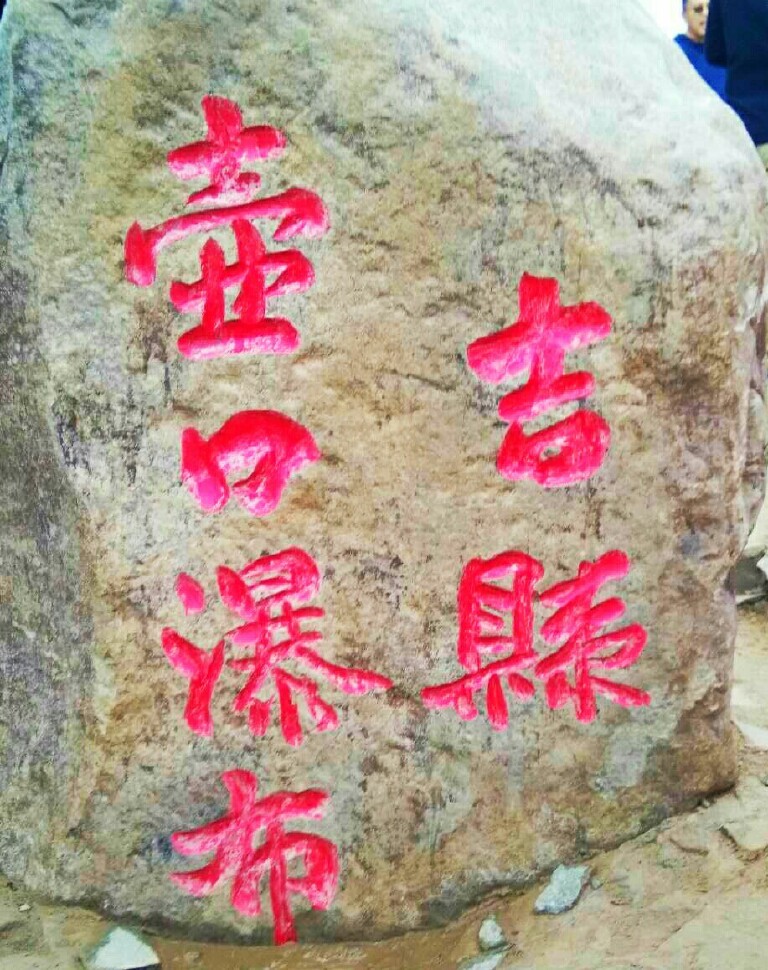 吉縣
壺口瀑布